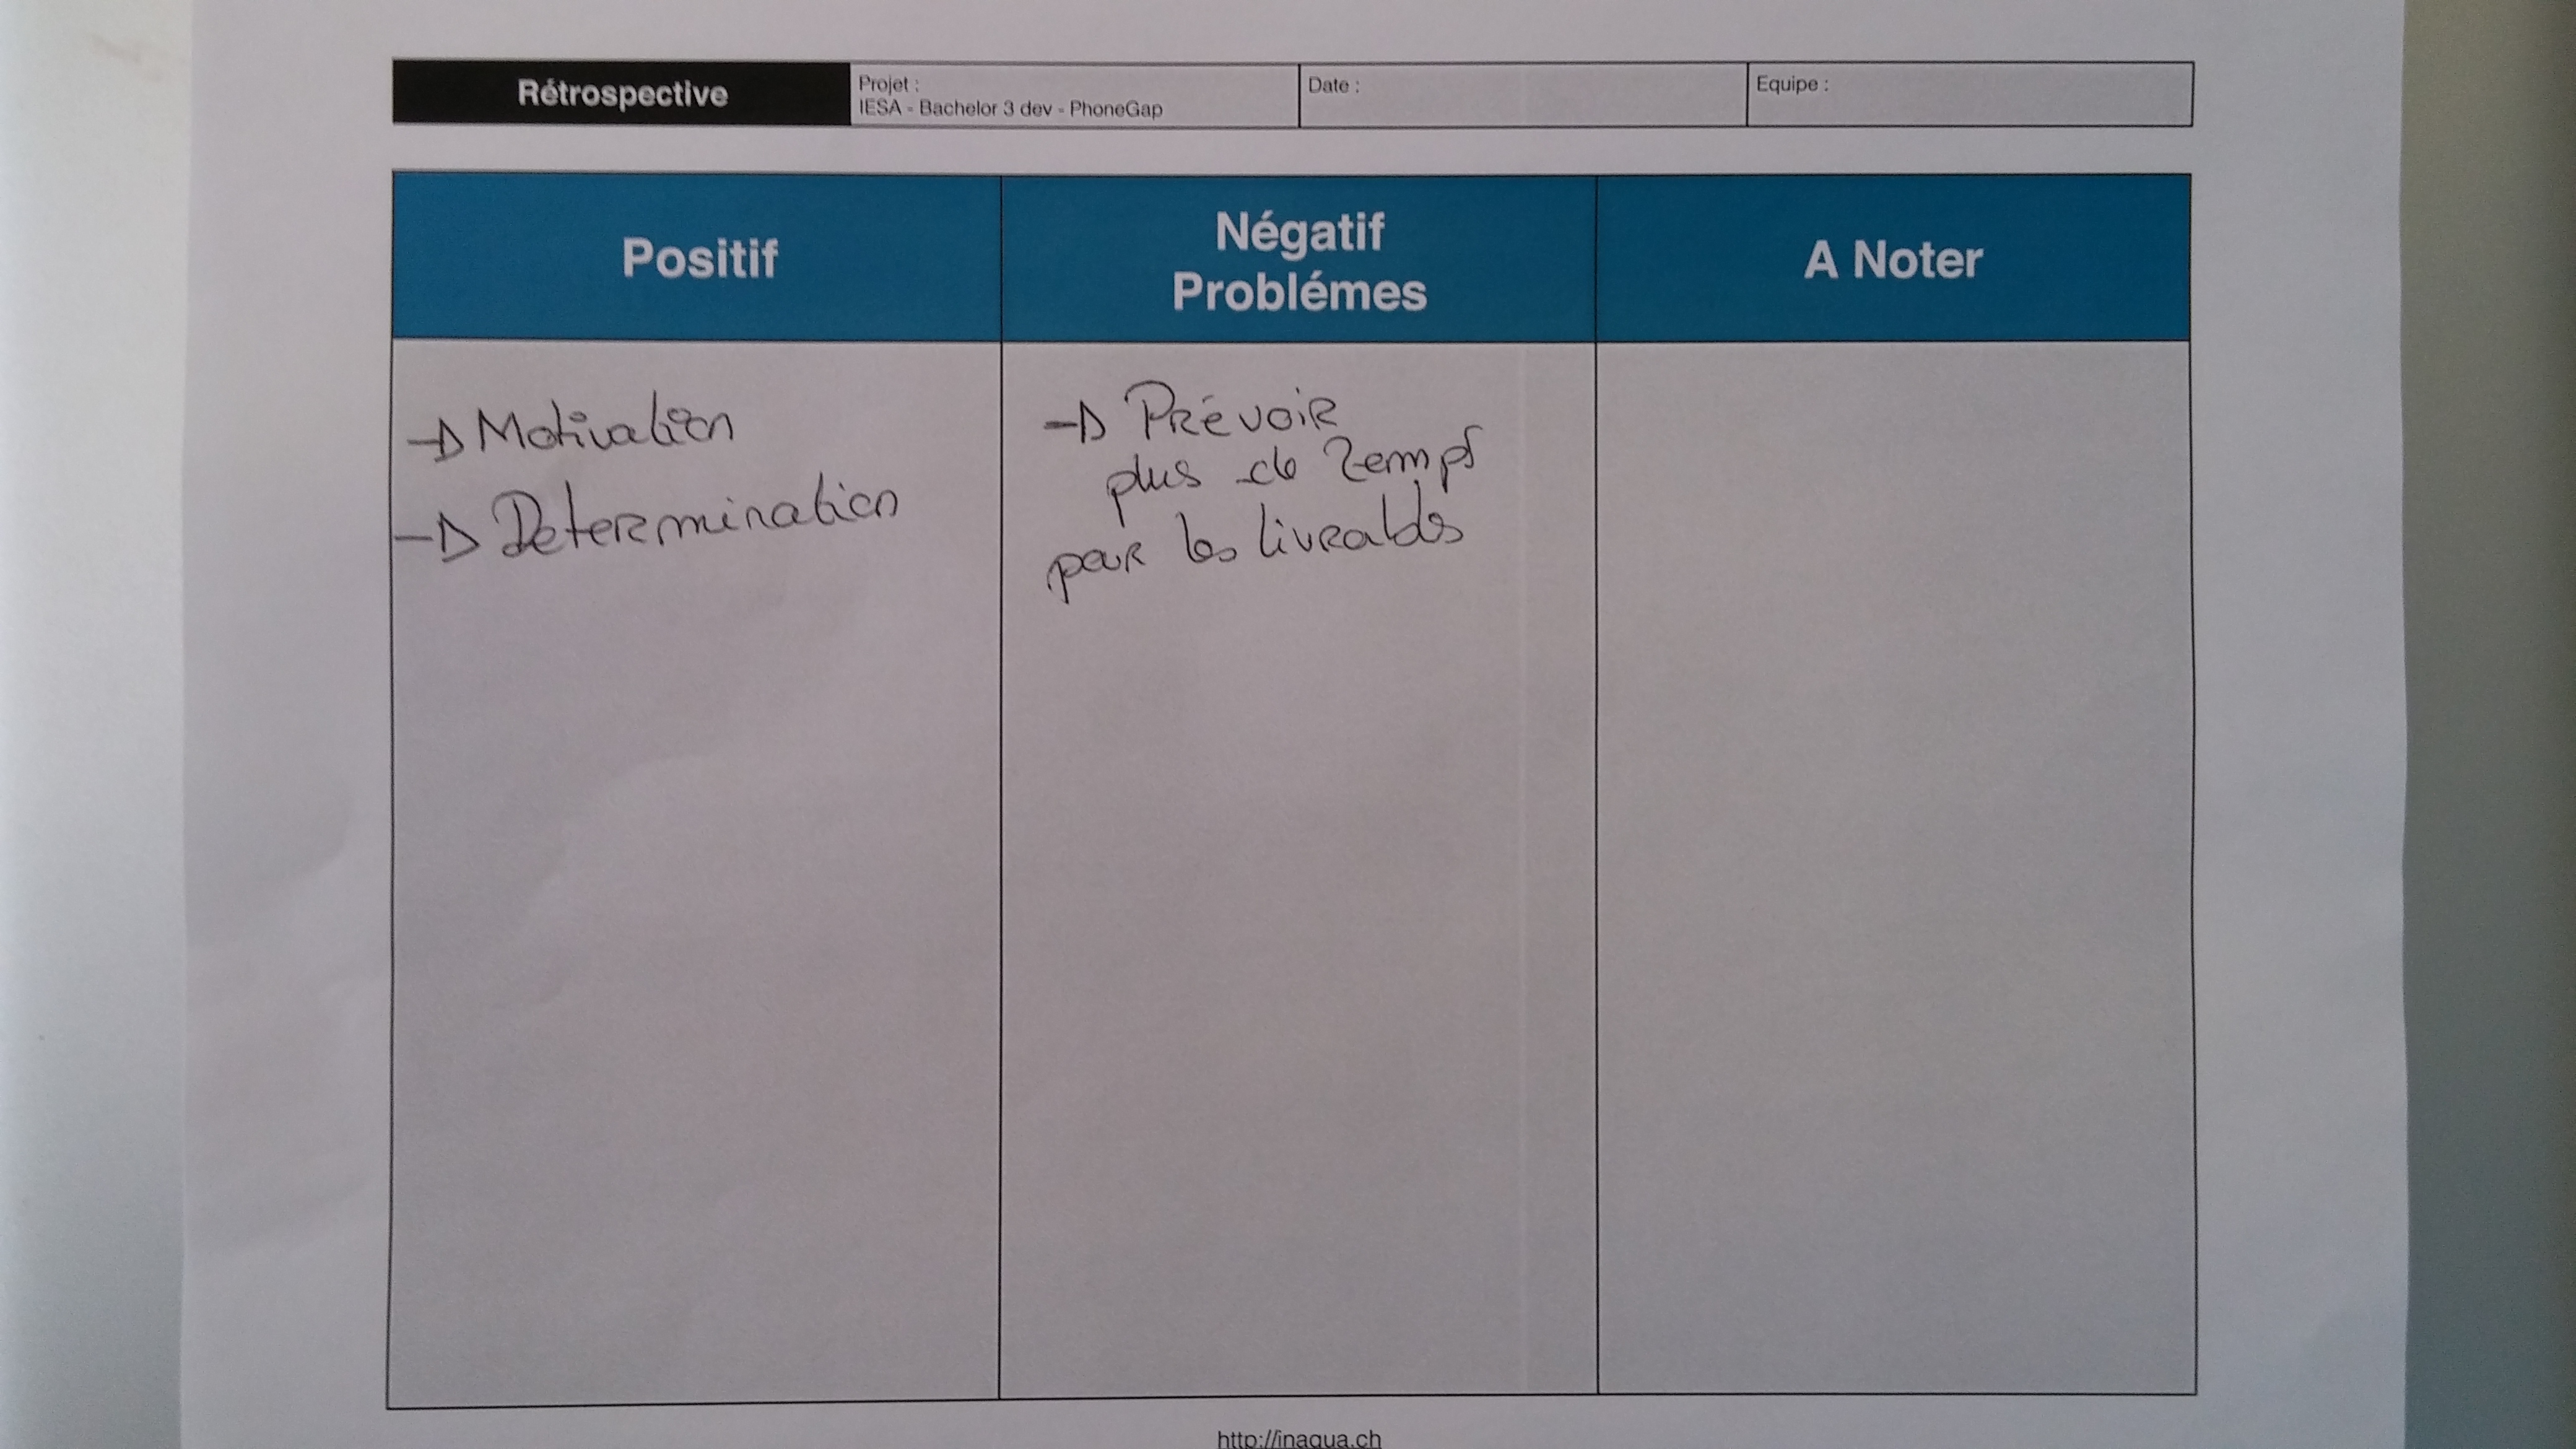 Rétrospective
Projet :
IESA - Bachelor 3 dev - PhoneGap
Date :
Equipe :
Positif
Négatif
Problémes
A Noter
→ Motivation
→ Determination
→ Prévoir
plus de temps
pour les livrables
http://inaqua.ch